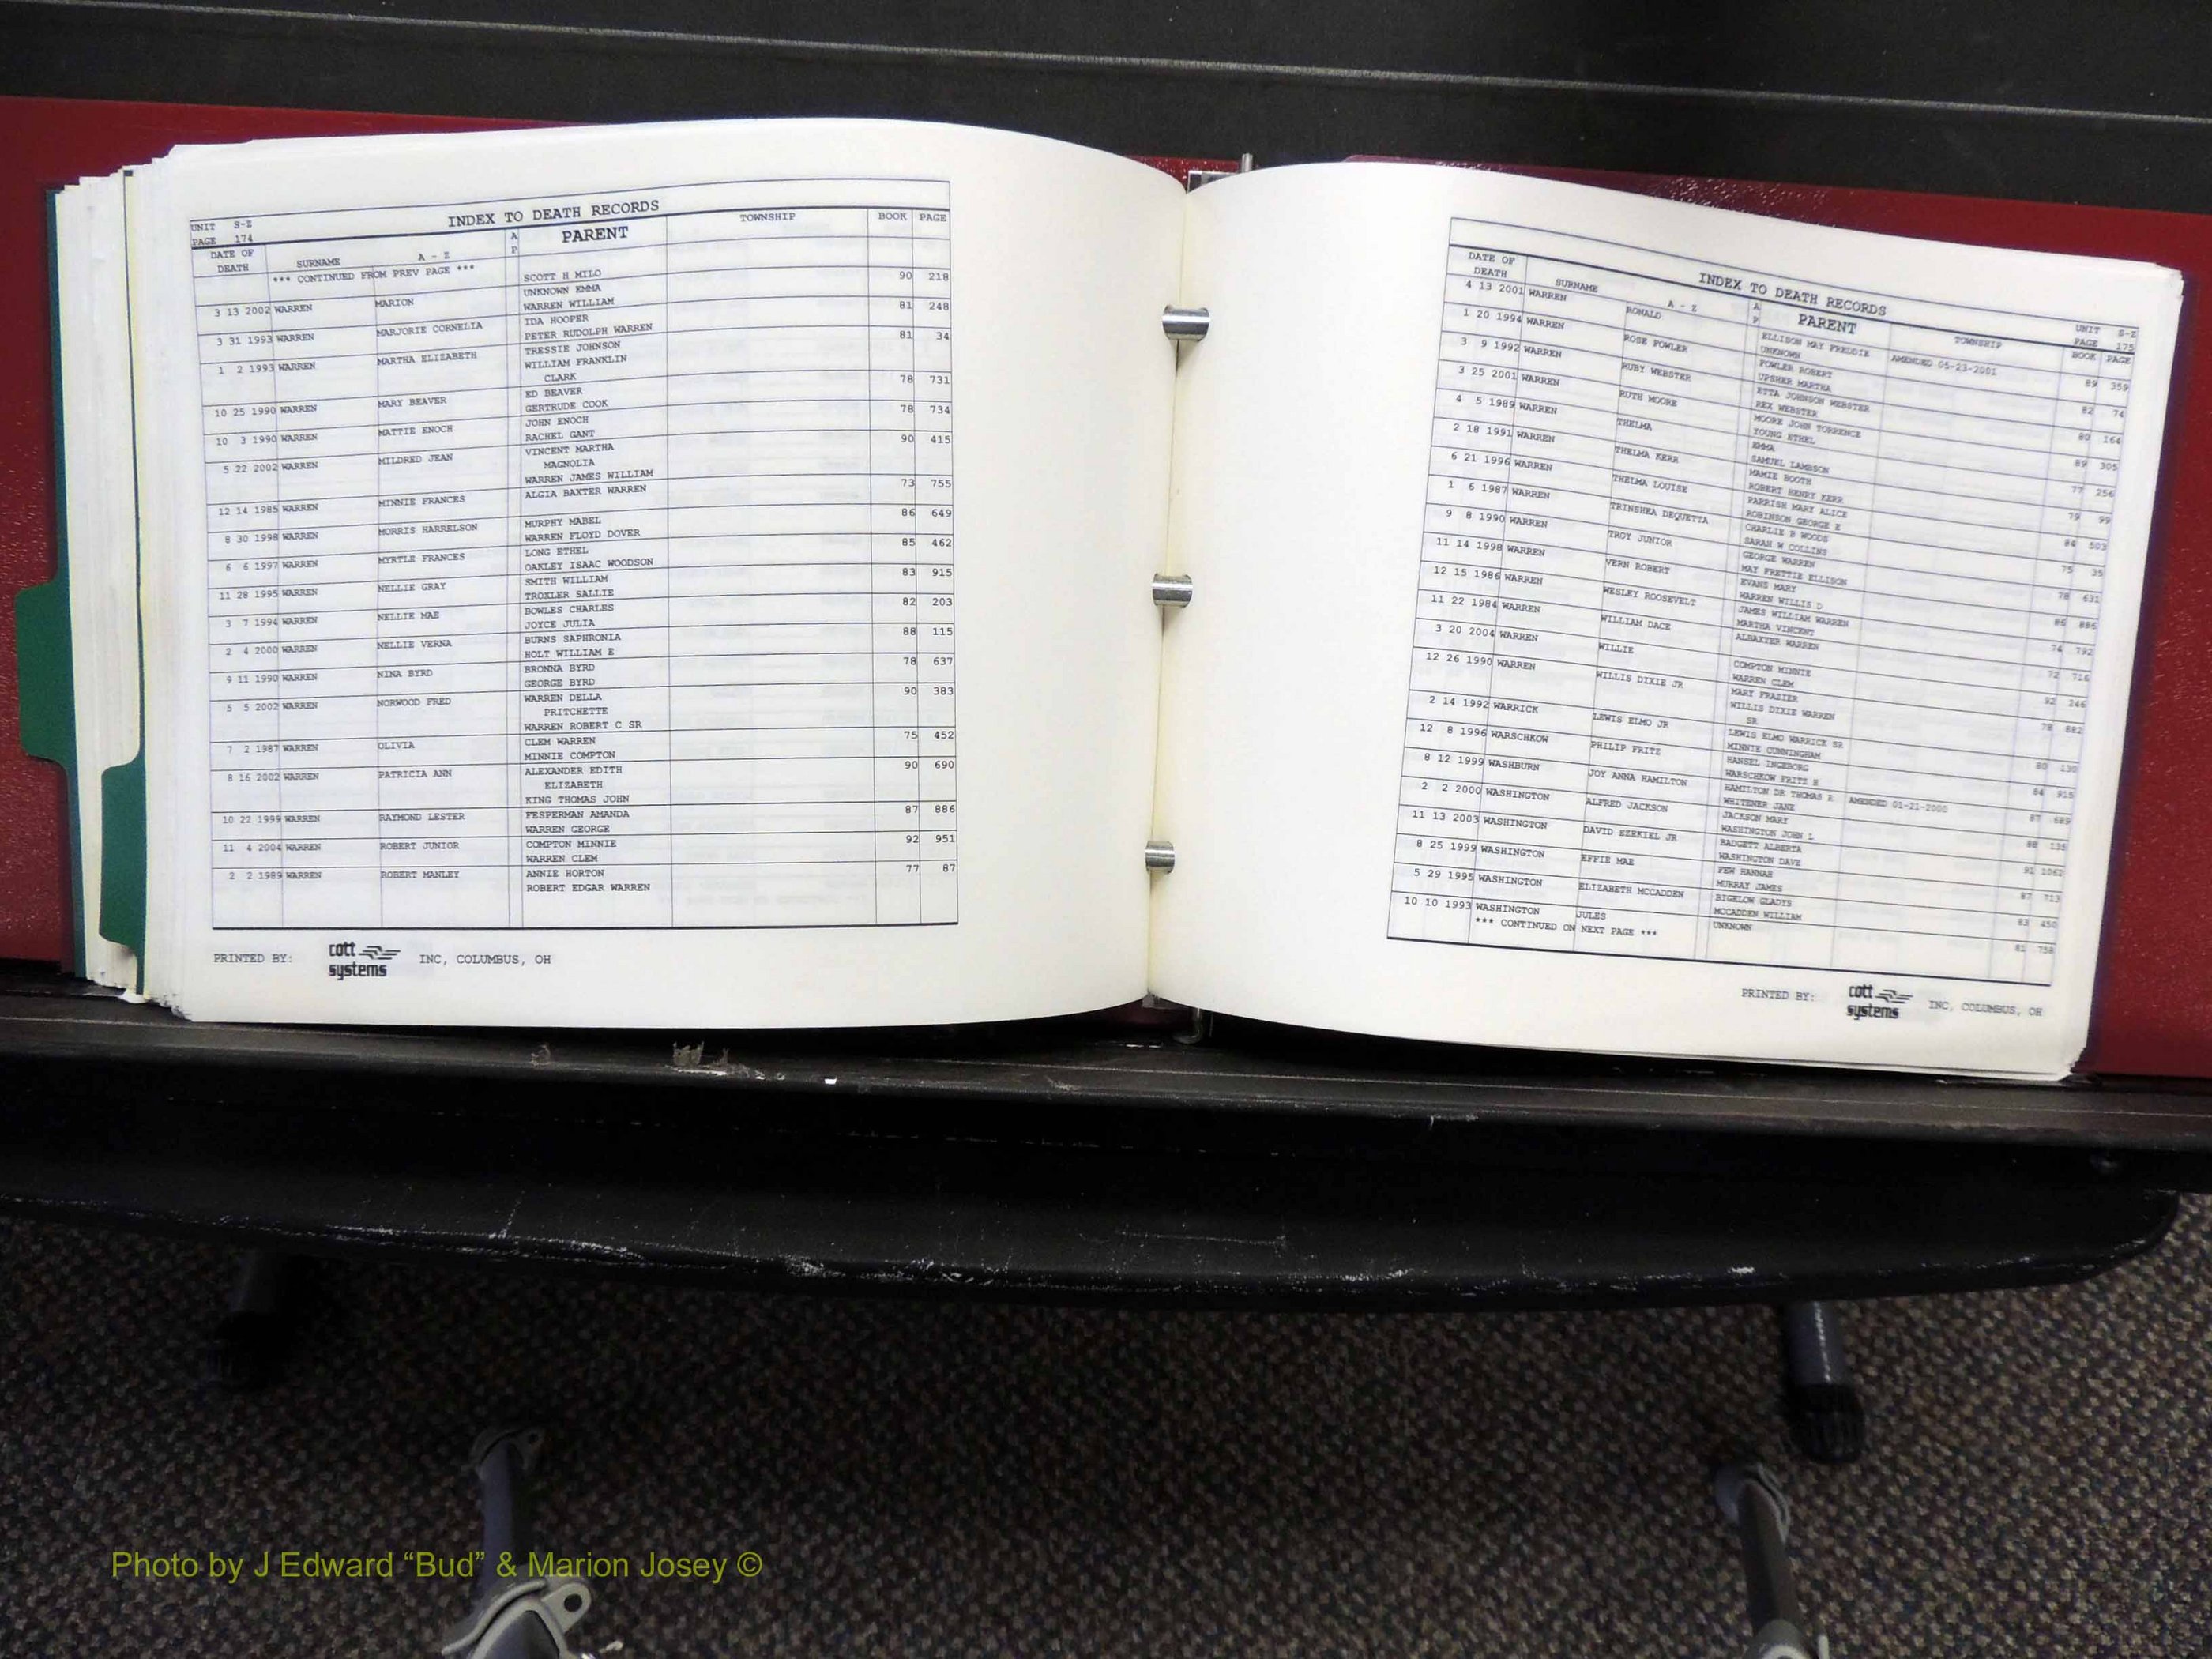 INDEX TO DEATH RECORDS
UNIT S-Z
PAGE 174
DATE OF DEATH SURNAME A - Z A P PARENT TOWNSHIP BOOK PAGE
*** CONTINUED FROM PREV PAGE ***
SCOTT H MILO
UNKNOWN EMMA
3 13 2002 WARREN MARION WARREN WILLIAM 90 218
IDA HOOPER
3 31 1993 WARREN MARJORIE CORNELIA PETER RUDOLPH WARREN 81 248
TRESSIE JOHNSON
1 2 1993 WARREN MARTHA ELIZABETH WILLIAM FRANKLIN 81 34
CLARK
ED BEAVER
10 25 1990 WARREN MARY BEAVER GERTRUDE COOK 78 731
JOHN ENOCH
10 3 1990 WARREN MATTIE ENOCH RACHEL GANT 78 734
VINCENT MARTHA
5 22 2002 WARREN MILDRED JEAN MAGNOLIA 90 415
WARREN JAMES WILLIAM
12 14 1985 WARREN MINNIE FRANCES ALGIA BAXTER WARREN 73 755
MURPHY MABEL
8 30 1998 WARREN MORRIS HARRELSON WARREN FLOYD DOVER 86 649
LONG ETHEL
6 6 1997 WARREN MYRTLE FRANCES OAKLEY ISAAC WOODSON 85 462
SMITH WILLIAM
11 28 1995 WARREN NELLIE GRAY TROXLER SALLIE 83 915
BOWLES CHARLES
3 7 1994 WARREN NELLIE MAE JOYCE JULIA 82 203
BURNS SAPHRONIA
2 4 2000 WARREN NELLIE VERNA HOLT WILLIAM E 88 115
BRONNA BYRD
9 11 1990 WARREN NINA BYRD GEORGE BYRD 78 637
WARREN DELLA
5 5 2002 WARREN NORWOOD FRED PRITCHETTE 90 383
WARREN ROBERT C SR
7 2 1987 WARREN OLIVIA CLEM WARREN 75 452
MINNIE COMPTON
8 16 2002 WARREN PATRICIA ANN ALEXANDER EDITH 90 690
ELIZABETH
KING THOMAS JOHN
10 22 1999 WARREN RAYMOND LESTER FESPERMAN AMANDA 87 886
WARREN GEORGE
11 4 2004 WARREN ROBERT JUNIOR COMPTON MINNIE 92 951
WARREN CLEM
2 2 1989 WARREN ROBERT MANLEY ANNIE HORTON 77 87
ROBERT EDGAR WARREN
PRINTED BY: cott systems INC, COLUMBUS, OH
INDEX TO DEATH RECORDS
UNIT S-Z
PAGE 175
DATE OF DEATH SURNAME A - Z A P PARENT TOWNSHIP BOOK PAGE
4 13 2001 WARREN RONALD ELLISON MAY FREDDIE AMENDED 05-23-2001 89 359
UNKNOWN
1 20 1994 WARREN ROSE FOWLER FOWLER ROBERT 82 74
UPSHER MARTHA
3 9 1992 WARREN RUBY WEBSTER ETTA JOHNSON WEBSTER 80 164
REX WEBSTER
3 25 2001 WARREN RUTH MOORE MOORE JOHN TORRENCE 89 305
YOUNG ETHEL
4 5 1989 WARREN THELMA EMMA 77 256
SAMUEL LAMBSON
2 18 1991 WARREN THELMA KERR MAMIE BOOTH 79 99
ROBERT HENRY KERR
6 21 1996 WARREN THELMA LOUISE PARRISH MARY ALICE 84 503
ROBINSON GEORGE E
1 6 1987 WARREN TRINSHEA DEQUETTA CHARLIE B WOODS 75 35
SARAH W COLLINS
9 8 1990 WARREN TROY JUNIOR GEORGE WARREN 78 631
MAY FRETTIE ELLISON
11 14 1998 WARREN VERN ROBERT EVANS MARY 86 886
WARREN WILLIS D
12 15 1986 WARREN WESLEY ROOSEVELT JAMES WILLIAM WARREN 74 792
MARTHA VINCENT
11 22 1984 WARREN WILLIAM DACE ALBAXTER WARREN 72 716
3 20 2004 WARREN WILLIE COMPTON MINNIE 92 246
WARREN CLEM
12 26 1990 WARREN WILLIS DIXIE JR MARY FRAZIER 78 882
WILLIS DIXIE WARREN
SR
2 14 1992 WARRICK LEWIS ELMO JR LEWIS ELMO WARRICK SR 80 130
MINNIE CUNNINGHAM
12 8 1996 WARSCHKOW PHILIP FRITZ HANSEL INGEBORG 84 915
WARSCHKOW FRITZ H
8 12 1999 WASHBURN JOY ANNA HAMILTON HAMILTON DR THOMAS R AMENDED 01-21-2000 87 689
WHITENER JANE
2 2 2000 WASHINGTON ALFRED JACKSON JACKSON MARY 88 135
WASHINGTON JOHN L
11 13 2003 WASHINGTON DAVID EZEKIEL JR BADGETT ALBERTA 91 1062
WASHINGTON DAVE
8 25 1999 WASHINGTON EFFIE MAE FEW HANNAH 87 713
MURRAY JAMES
5 29 1995 WASHINGTON ELIZABETH MCCADDEN BIGELOW GLADYS 83 450
MCCADDEN WILLIAM
10 10 1993 WASHINGTON JULES UNKNOWN 81 758
*** CONTINUED ON NEXT PAGE ***
PRINTED BY: cott systems INC, COLUMBUS, OH
Photo by J Edward “Bud” & Marion Josey ©